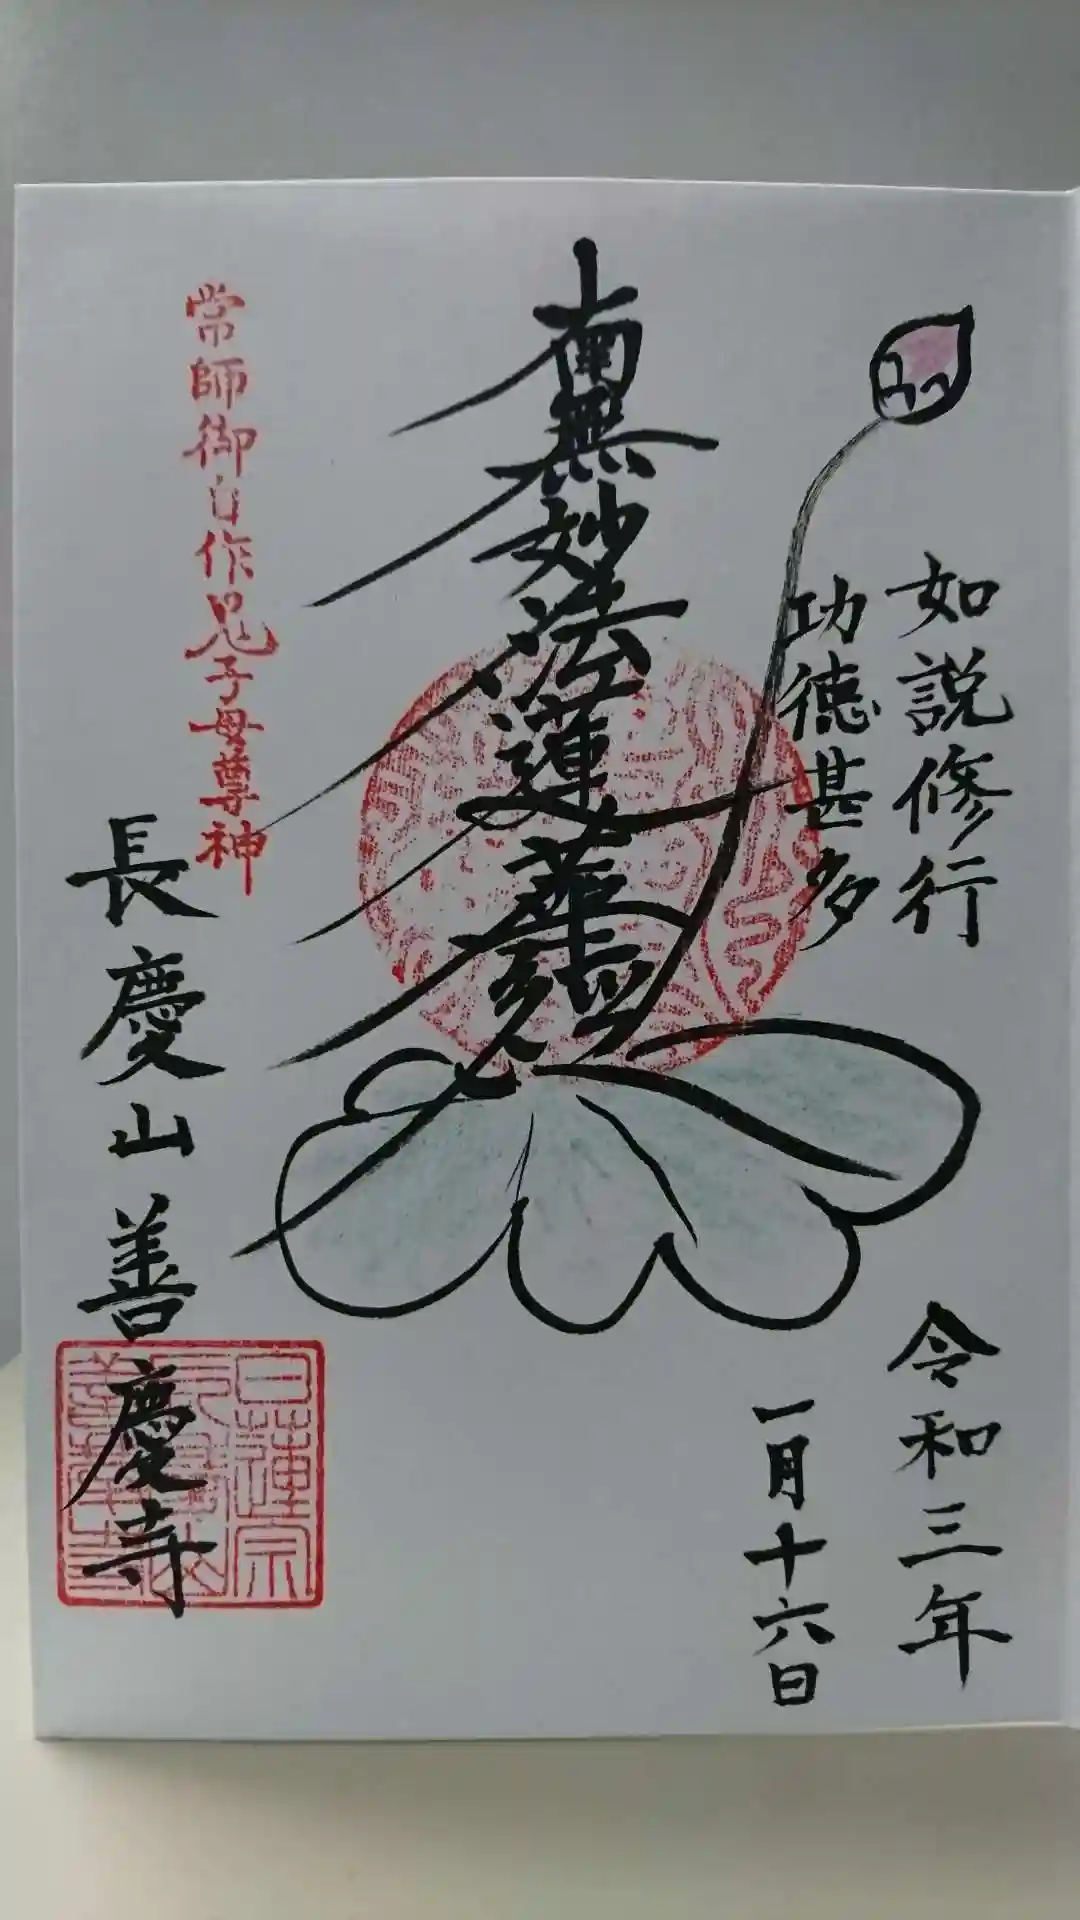 如説修行
功徳甚多
南無妙法蓮華経
常師御自作鬼子母尊神
長慶山善慶寺
日蓮宗
令和三年
一月十六日